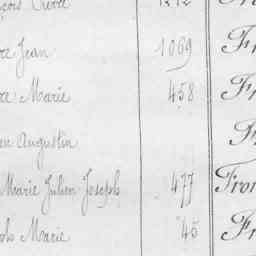 Jean 1069 Fr
Marie 458 Fr
Augustin F
Marie Julien Joseph 477 Fro
Marie 45 Fr